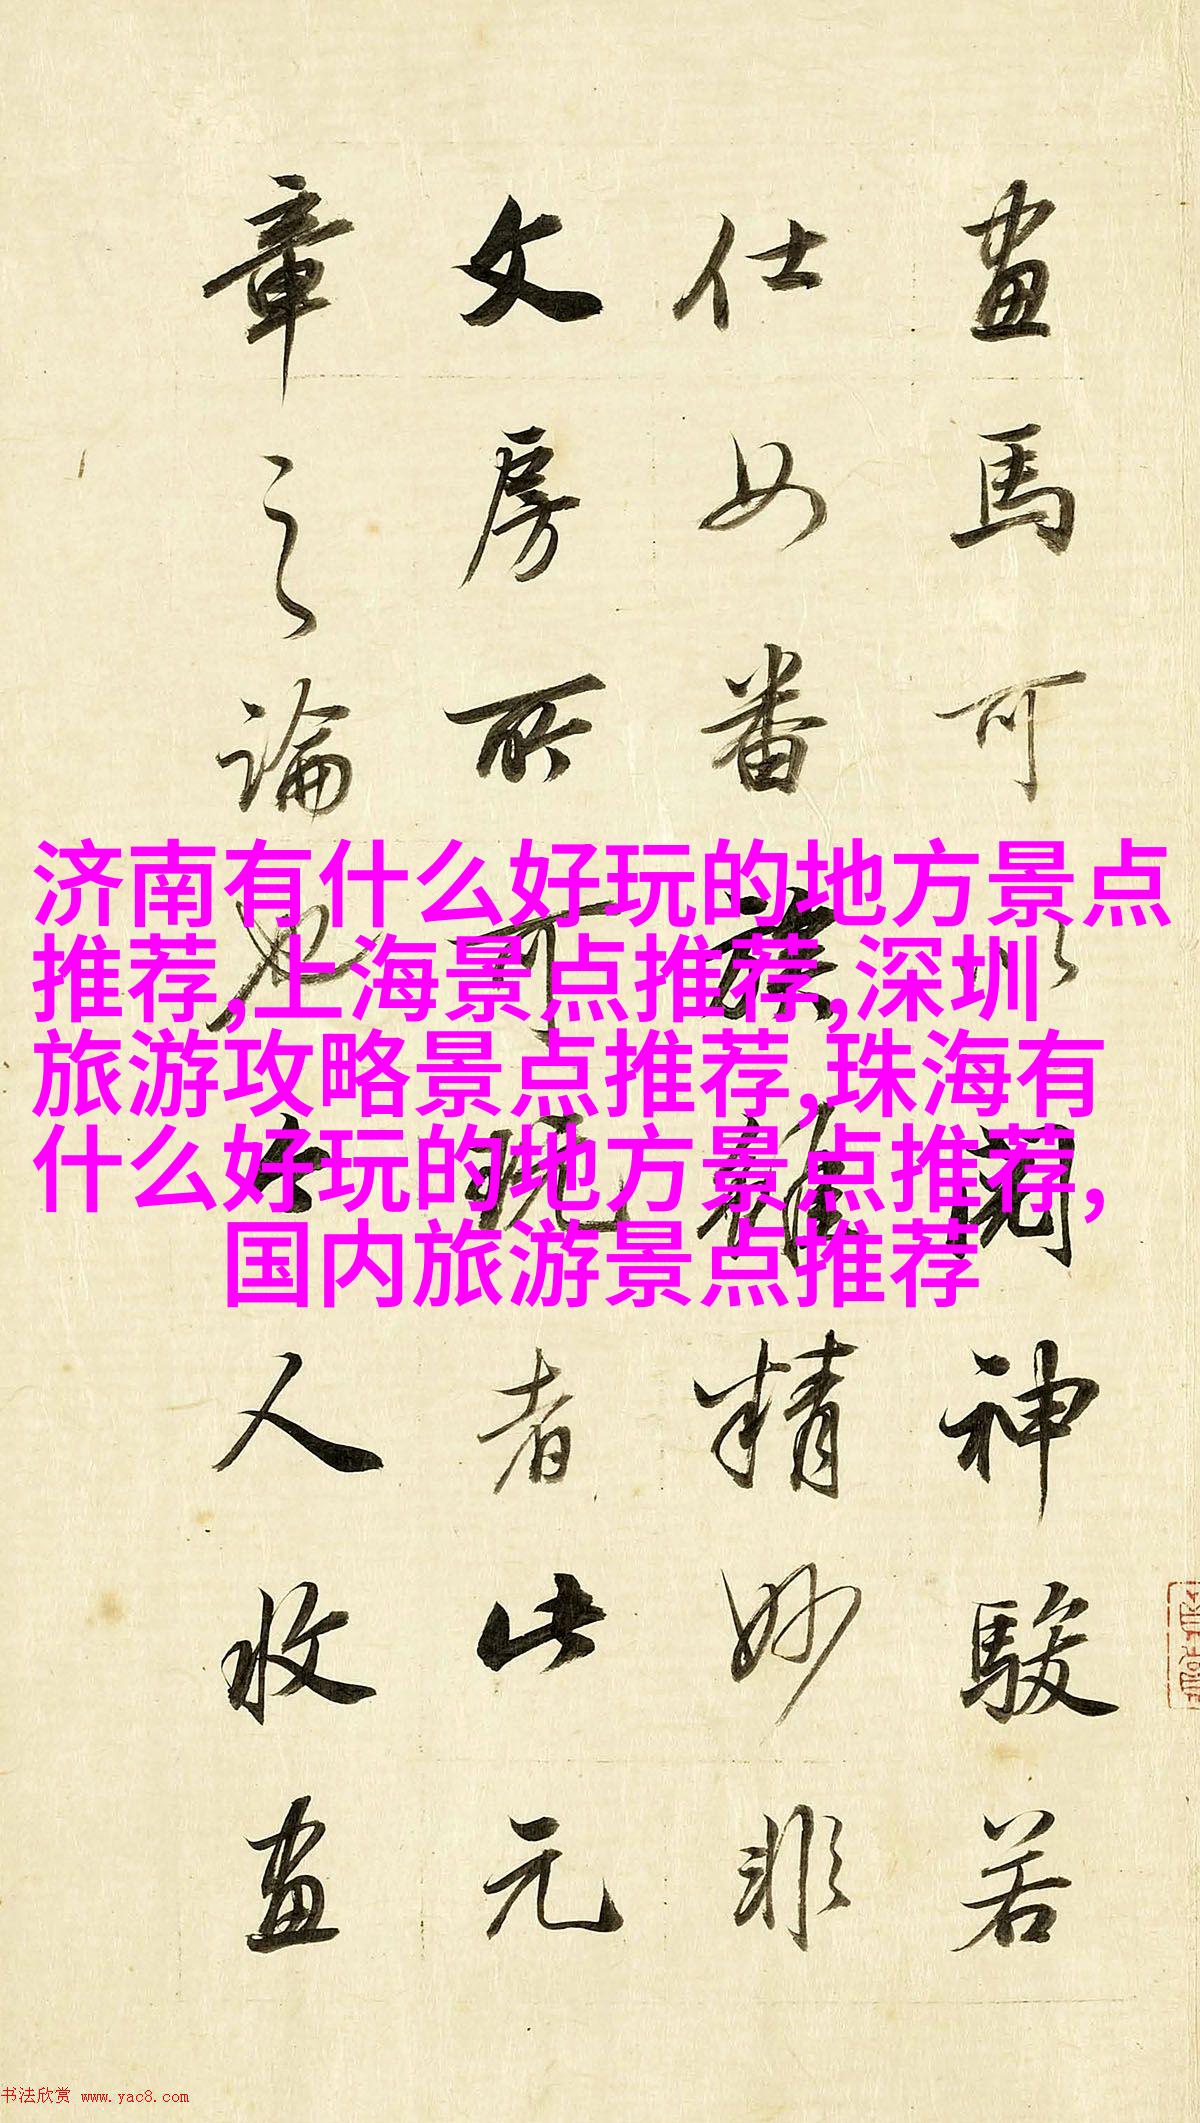 畫馬可以閱神駿若
仕女番族雖精妙非
文房所可玩者此元
章之論也今人收畫
济南有什么好玩的地方景点
推荐,上海景点推荐,深圳
旅游攻略景点推荐,珠海有
什么好玩的地方景点推荐,
国内旅游景点推荐
书法欣赏 www.yac8.com